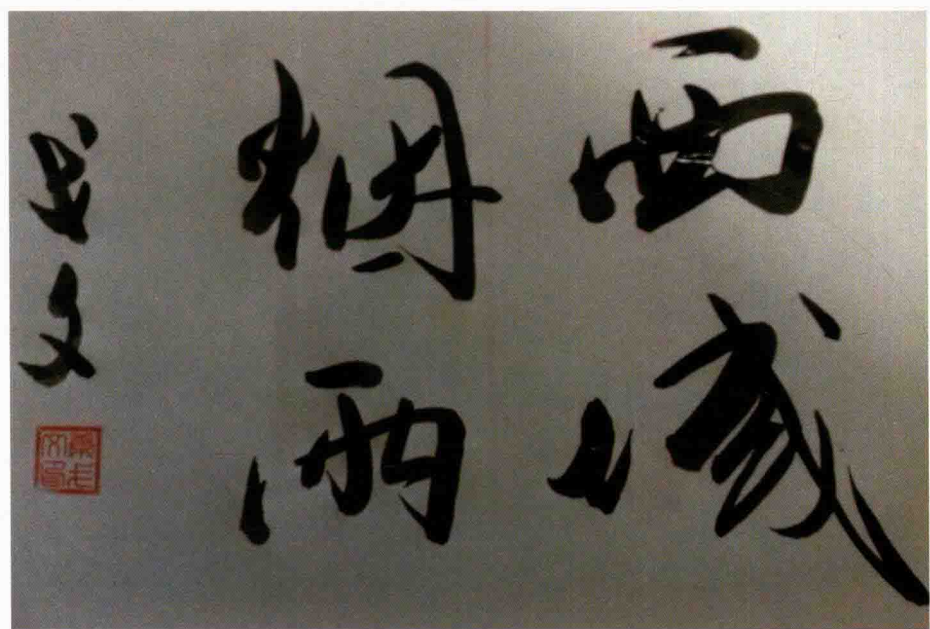 西域
烟雨
长文